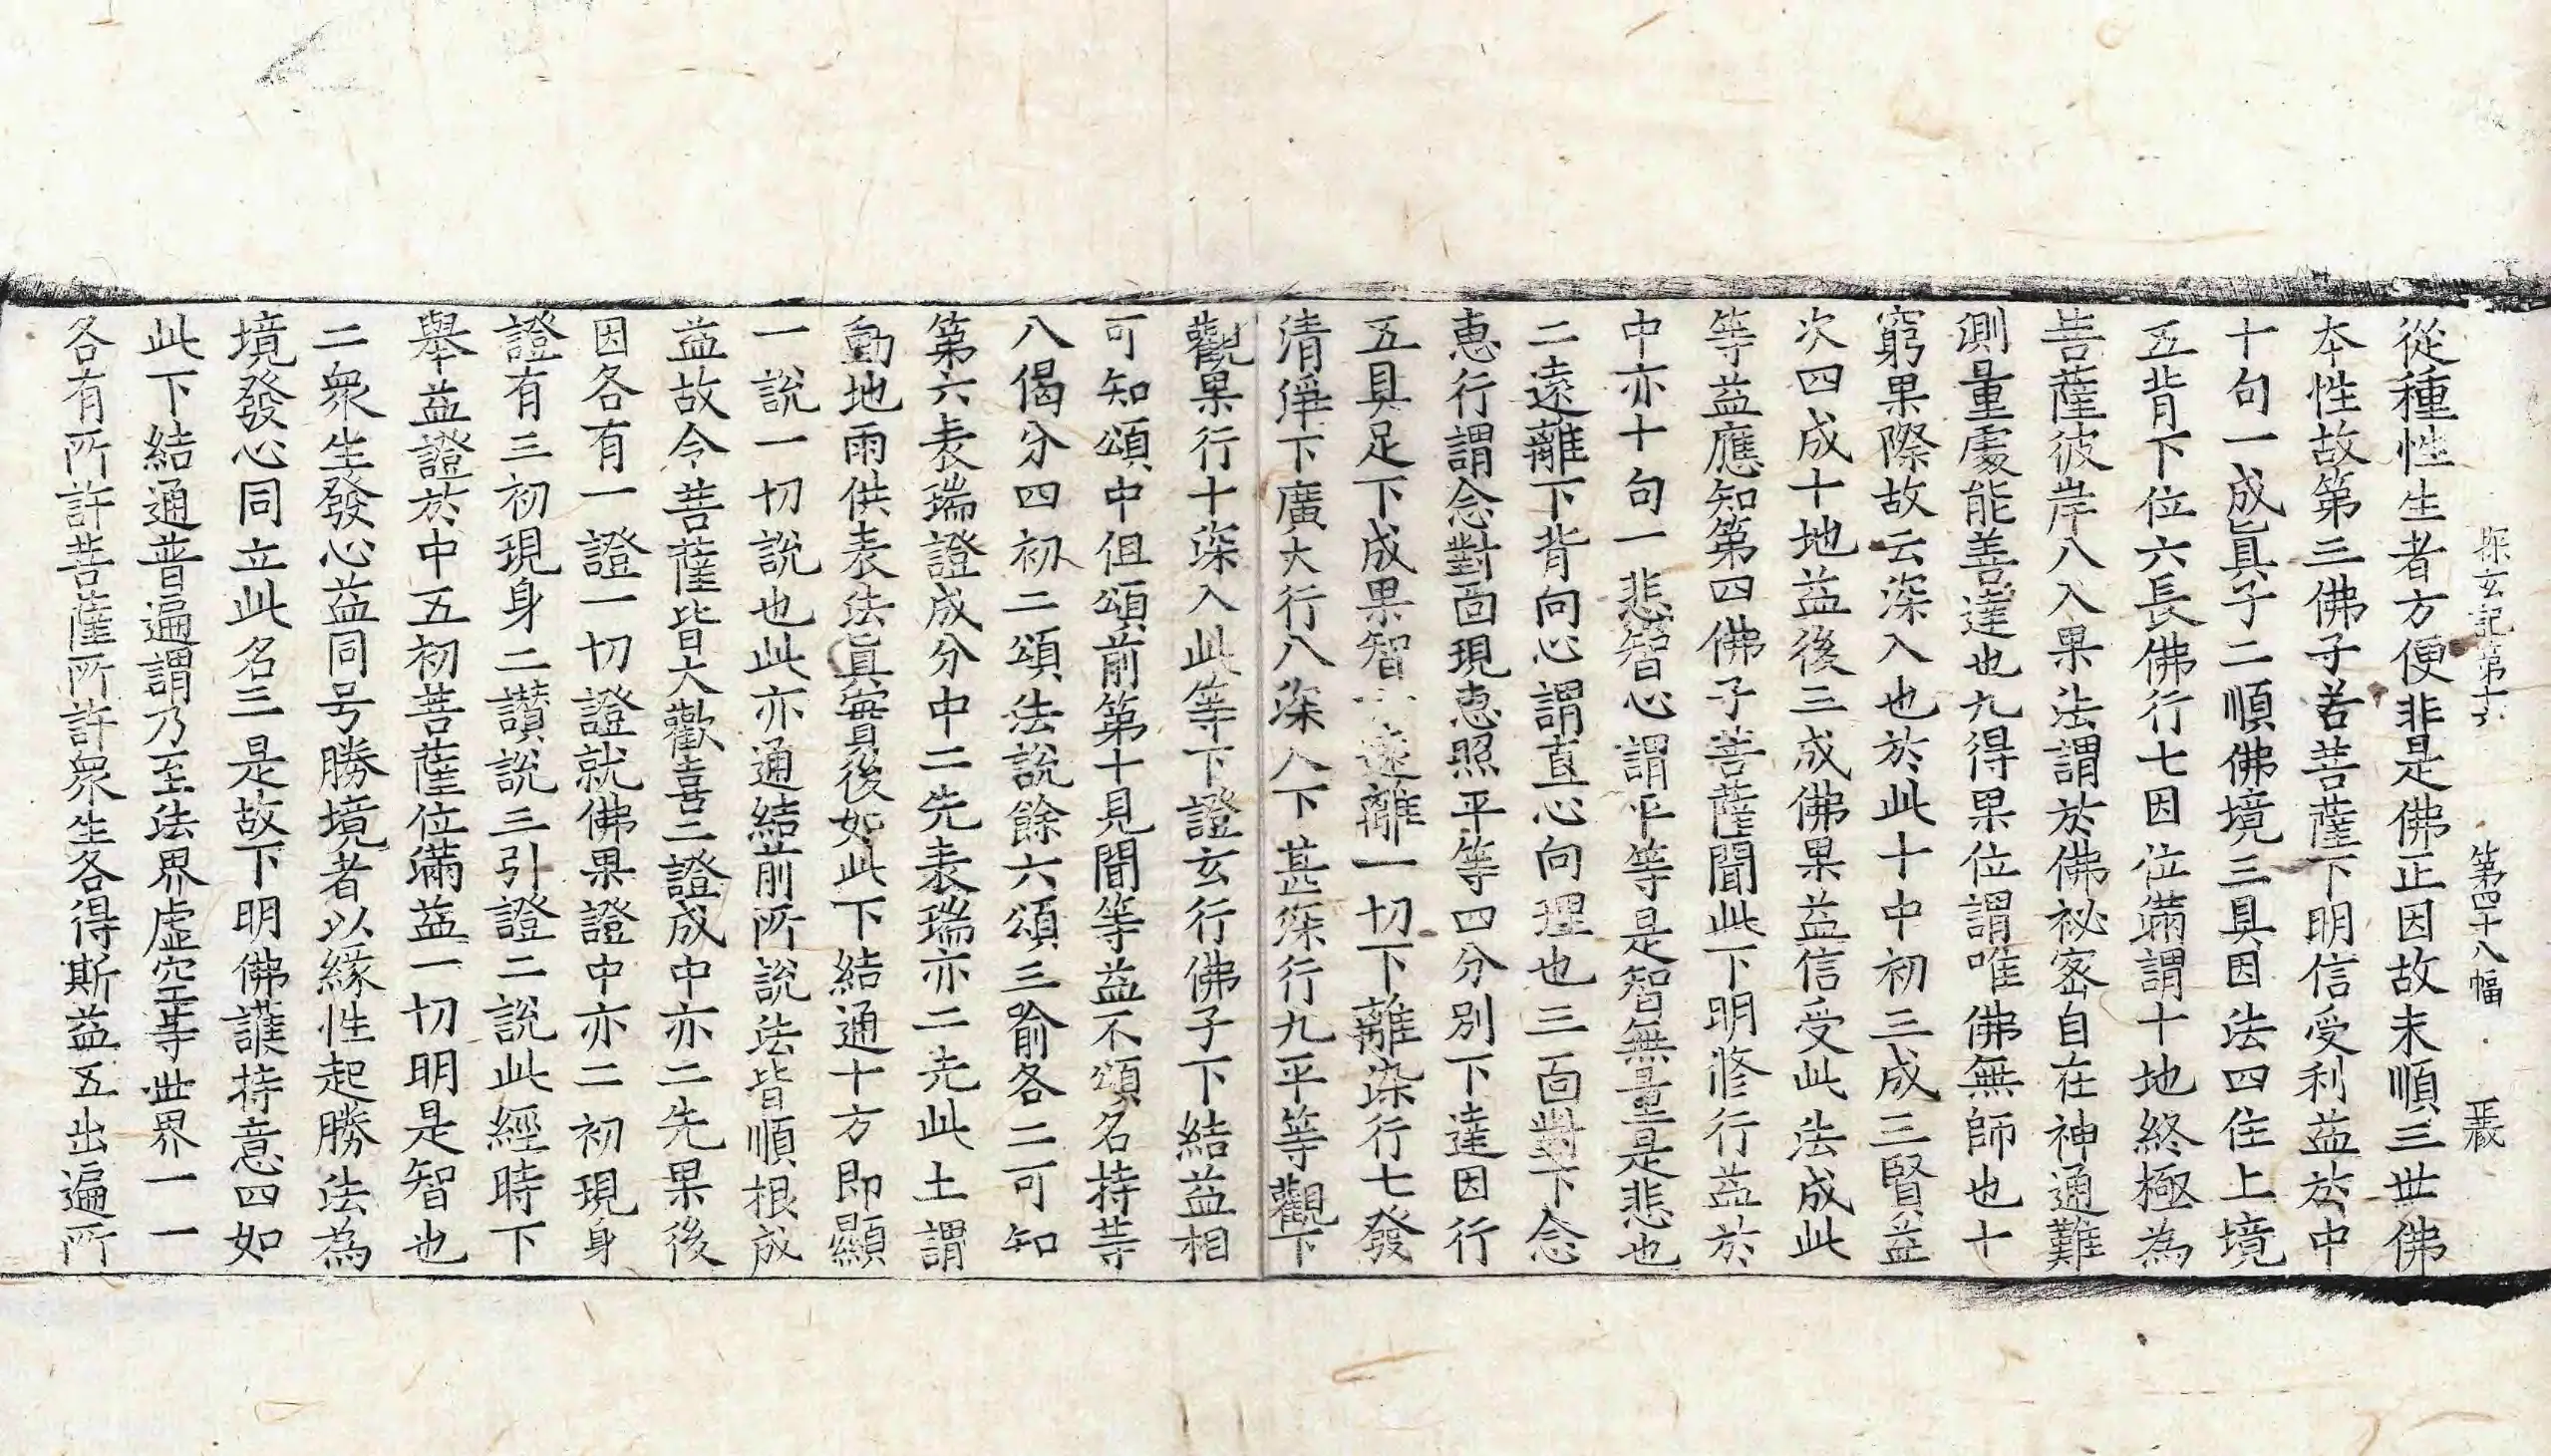 探玄記第十六 第四十八幅 𢀖蔵
從種性生者方便非是佛正因故未順三世佛
本性故第三佛子若菩薩下明信受利益於中
十句一成眞子二順佛境三具因法四住上境
五背下位六長佛行七因位滿謂十地終極為
菩薩彼岸八入果法謂於佛祕密自在神通難
測量處能善達也九得果位謂唯佛無師也十
窮果際故云深入也於此十中初三成三賢益
次四成十地益後三成佛果益信受此法成此
等益應知第四佛子菩薩聞此下明修行益於
中亦十句一悲智心謂平等是智無量是悲也
二遠離下背向心謂直心向理也三面對下念
恵行謂念對面現恵照平等四分別下達因行
五具足下成果智 遠離一切下離染行七發
清淨下廣大行八深入下甚深行九平等觀下
觀果行十深入此等下證玄行佛子下結益相
可知頌中但頌前第十見聞等益不頌名持等
八偈分四初二頌法說餘六頌三喻各二可知
第六表瑞證成分中二先表瑞亦二先此土謂
動地雨供表法眞實後如此下結通十方即顯
一說一切說也此亦通結前所說法皆順根成
益故令菩薩皆大歡喜二證成中亦二先果後
因各有一證一切證就佛果證中亦二初現身
證有三初現身二讚說三引證二說此經時下
舉益證於中五初菩薩位滿益一切明是智也
二衆生發心益同号勝境者以緣性起勝法為
境發心同立此名三是故下明佛護持意四如
此下結通普遍謂乃至法界虛空等世界一一
各有所許菩薩所許衆生各得斯益五出遍所